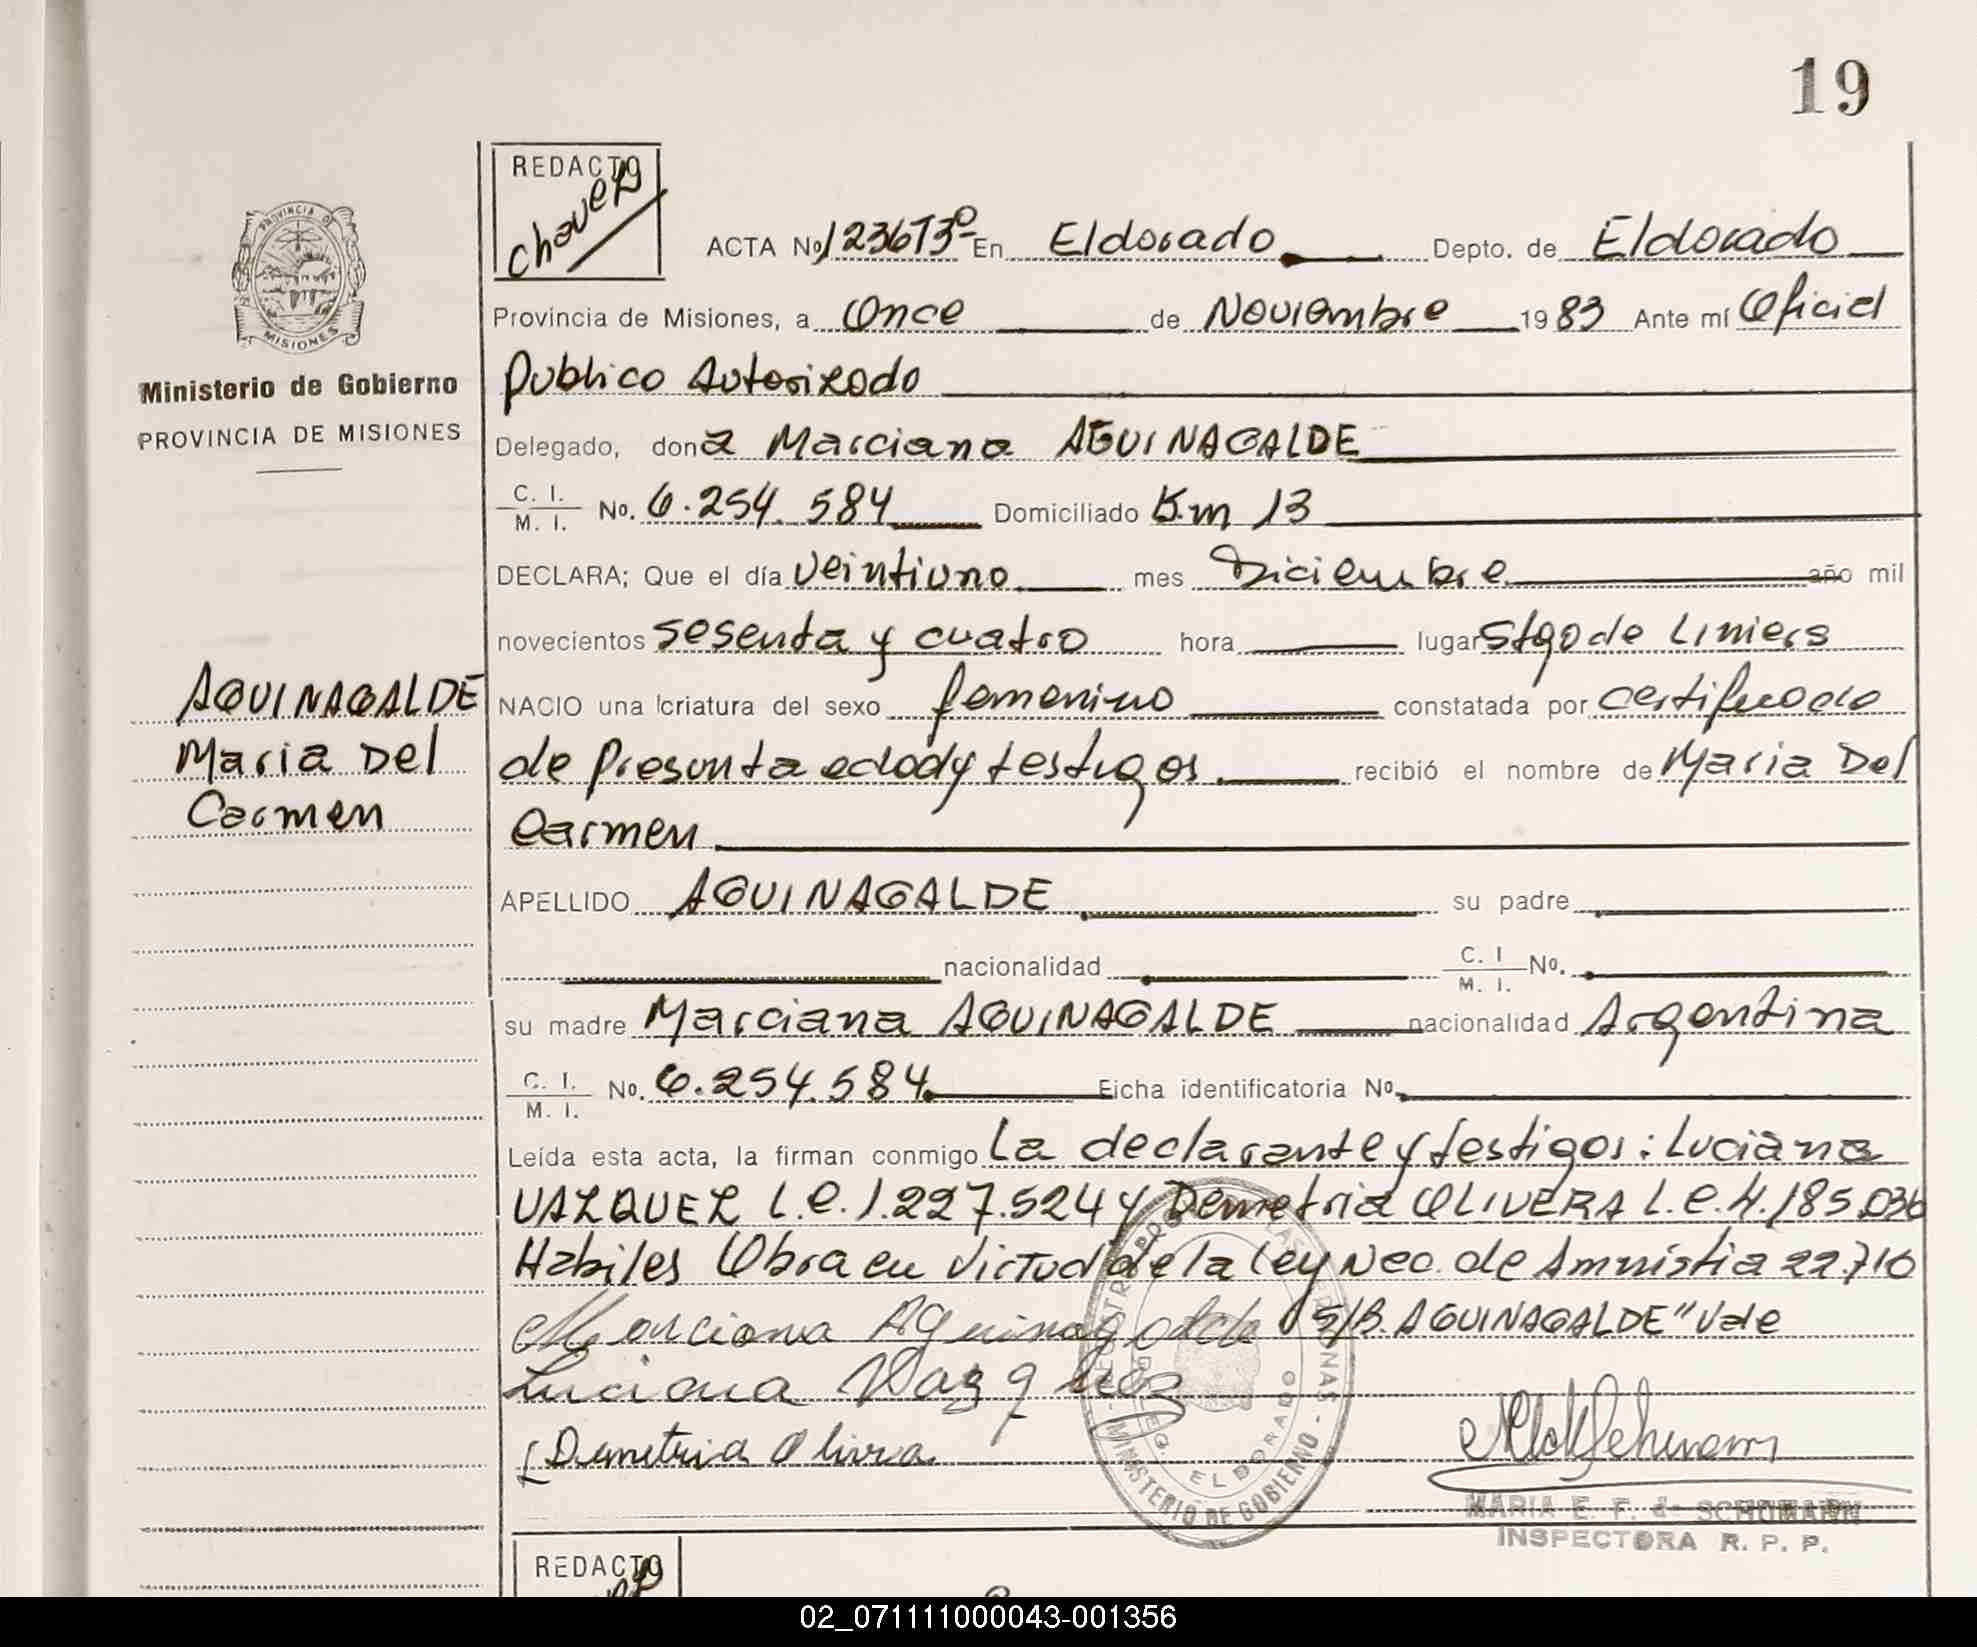 19
REDACTO
Chavez
PROVINCIA DE
MISIONES
Ministerio de Gobierno
PROVINCIA DE MISIONES
ACTA No 1236T3º- En Eldorado Depto. de Eldorado
Provincia de Misiones, a Once de Noviembre 1983 Ante mí Oficial
Publico Autorizado
Delegado, dona Marciana AGUINAGALDE
C. I.
M. I. No. 6.254.584 Domiciliado K.m 13
DECLARA; Que el día veintiuno mes Diciembre año mil
novecientos sesenta y cuatro hora lugar Stgo de Liniers
AGUINAGALDE
Maria Del
Carmen
NACIO una criatura del sexo femenino constatada por certificado
de Presunta edad y testigos. recibió el nombre de Maria Del
Carmen
APELLIDO AGUINAGALDE su padre
nacionalidad C. I. M. I. No.
su madre Marciana AGUINAGALDE nacionalidad Argentina
C. I.
M. I. No. 6.254.584 Ficha identificatoria No.
Leída esta acta, la firman conmigo La declarante y testigos: Luciana
VAZQUEZ L.C. 1.227.524 y Demetria OLIVERA L.C. 4.185.036
Habiles Obra en Virtud de la Ley Nac. de Amnistia 22.710
Marciana Aguinagalde S/B. AGUINAGALDE" Vale
Luciana Vazquez
Demetria Olivra
MINISTERIO DE GOBIERNO
ELDORADO
MARIA E. F. de SCHUMANN
INSPECTORA R. P. P.
REDACTO
02_071111000043-001356